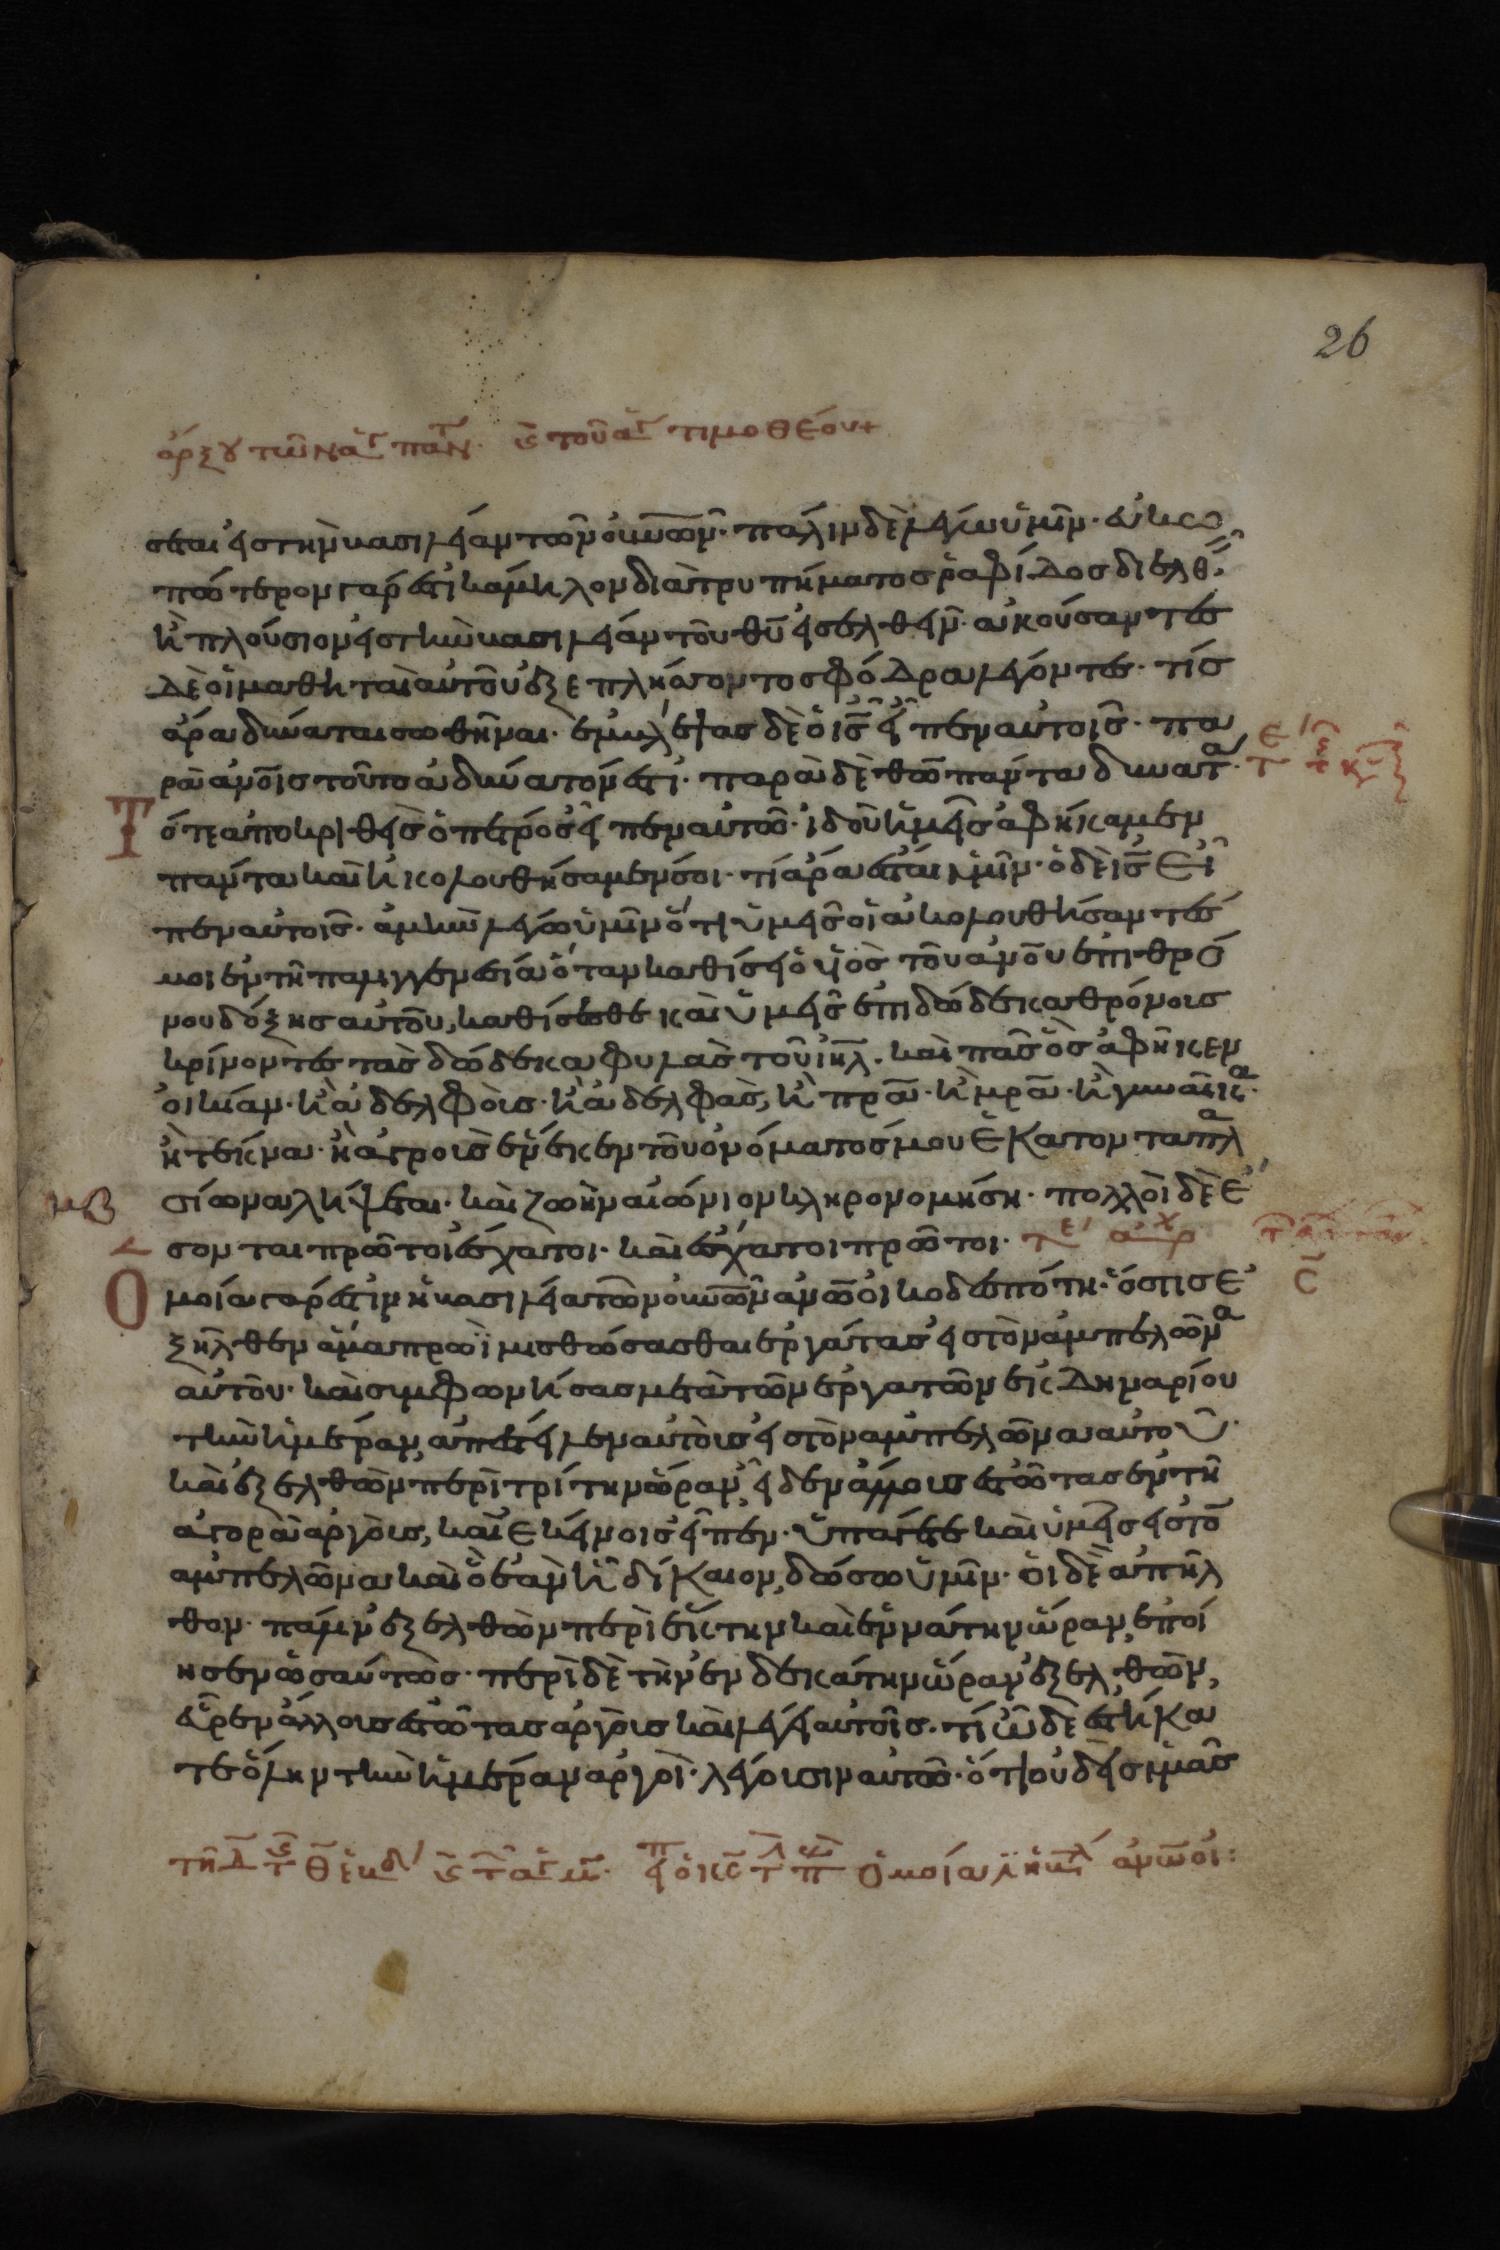 26
σεται εἰς τὴν βασιλείαν τῶν οὐνῶν· πάλιν δὲ λέγω ὑμῖν· εὐκο
πώτερον γάρ ἐστι κάμηλον διὰ τρυπήματος ῥαφίδος διελθεῖν
ἢ πλούσιον εἰς τὴν βασιλείαν τοῦ θυ εἰσελθεῖν· ἀκούσαντες
δὲ οἱ μαθηταὶ αὐτοῦ ἐξεπλήσσοντο σφόδρα λέγοντες· τίς
ἄρα δύναται σωθῆναι· ἐμβλέψας δὲ ὁ ις εἶπεν αὐτοῖς· πα
ρὰ ανοις τοῦτο ἀδύνατόν ἐστι· παρὰ δὲ θω πάντα δυνατά·
Τότε ἀποκριθεὶς ὁ πέτρος εἶπεν αὐτῶ· ἰδοὺ ἡμεῖς ἀφήκαμεν
πάντα καὶ ἠκολουθήσαμέν σοι· τί ἄρα ἔσται ἡμῖν· ὁ δὲ ις εἶ
πεν αὐτοῖς· ἀμὴν λέγω ὑμῖν ὅτι ὑμεῖς οἱ ἀκολουθήσαντές
μοι ἐν τῆ παλιγγενεσία ὅταν καθίση ὁ υἱὸς τοῦ ανου ἐπὶ θρό
νου δόξης αὐτοῦ, καθίσεσθε καὶ ὑμεῖς ἐπὶ δώδεκα θρόνους
κρίνοντες τὰς δώδεκα φυλὰς τοῦ ιηλ· καὶ πᾶς ὃς ἀφῆκεν
οἰκίαν· ἢ ἀδελφοὺς· ἢ ἀδελφὰς, ἢ πρα· ἢ μρα· ἢ γυναῖκα·
ἢ τέκνα· ἢ ἀγροὺς ἕνεκεν τοῦ ὀνόματός μου ἑκατονταπλα
σίονα λήψεται· καὶ ζωὴν αἰώνιον κληρονομήση· πολλοὶ δὲ ἔ
σονται πρῶτοι ἔσχατοι· καὶ ἔσχατοι πρῶτοι·
Ὁμοία γάρ ἐστιν ἡ βασιλεία τῶν οὐνῶν ανω οἰκοδεσπότη· ὅστις ἐ
ξῆλθεν ἅμα πρωῒ μισθώσασθαι ἐργάτας εἰς τὸν ἀμπελῶνα
αὐτοῦ· καὶ συμφωνήσας μετὰ τῶν ἐργατῶν ἐκ δηναρίου
τὴν ἡμέραν, ἀπέστειλεν αὐτοὺς εἰς τὸν ἀμπελῶνα αὐτοῦ·
καὶ ἐξελθὼν περὶ τρίτην ὥραν, εἶδεν ἄλλους ἑστῶτας ἐν τῆ
ἀγορᾶ ἀργοὺς, καὶ ἐκείνοις εἶπεν· ὑπάγετε καὶ ὑμεῖς εἰς τὸ
ἀμπελῶνα καὶ ὃ ἐὰν ἦ δίκαιον, δώσω ὑμῖν· οἱ δὲ ἀπῆλ
θον· πάλιν ἐξελθὼν περὶ ἕκτην καὶ ἐννάτην ὥραν, ἐποί
ησεν ὡσαύτως· περὶ δὲ τὴν ἑνδεκάτην ὥραν ἐξελθὼν,
εὗρεν ἄλλους ἑστῶτας ἀργοὺς καὶ λέγει αὐτοῖς· τί ὧδε ἑστήκα
τε ὅλην τὴν ἡμέραν ἀργοὶ· λέγουσιν αὐτῶ· ὅτι οὐδεὶς ἡμᾶς